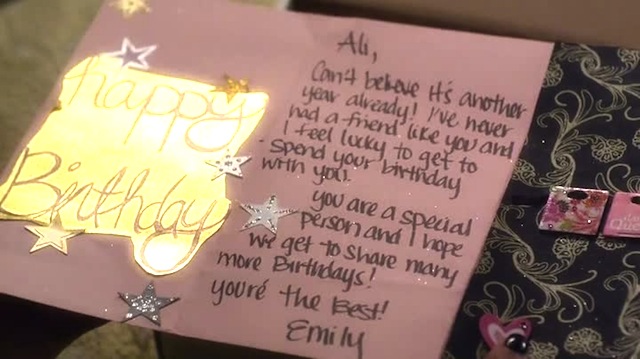 happy
Birthday
Ali,
Can't believe it's another
year already! I've never
had a friend like you and
I feel lucky to get to
spend your birthday
with you.
you are a special
person and I hope
we get to share many
more Birthdays!
you're the Best!
Emily